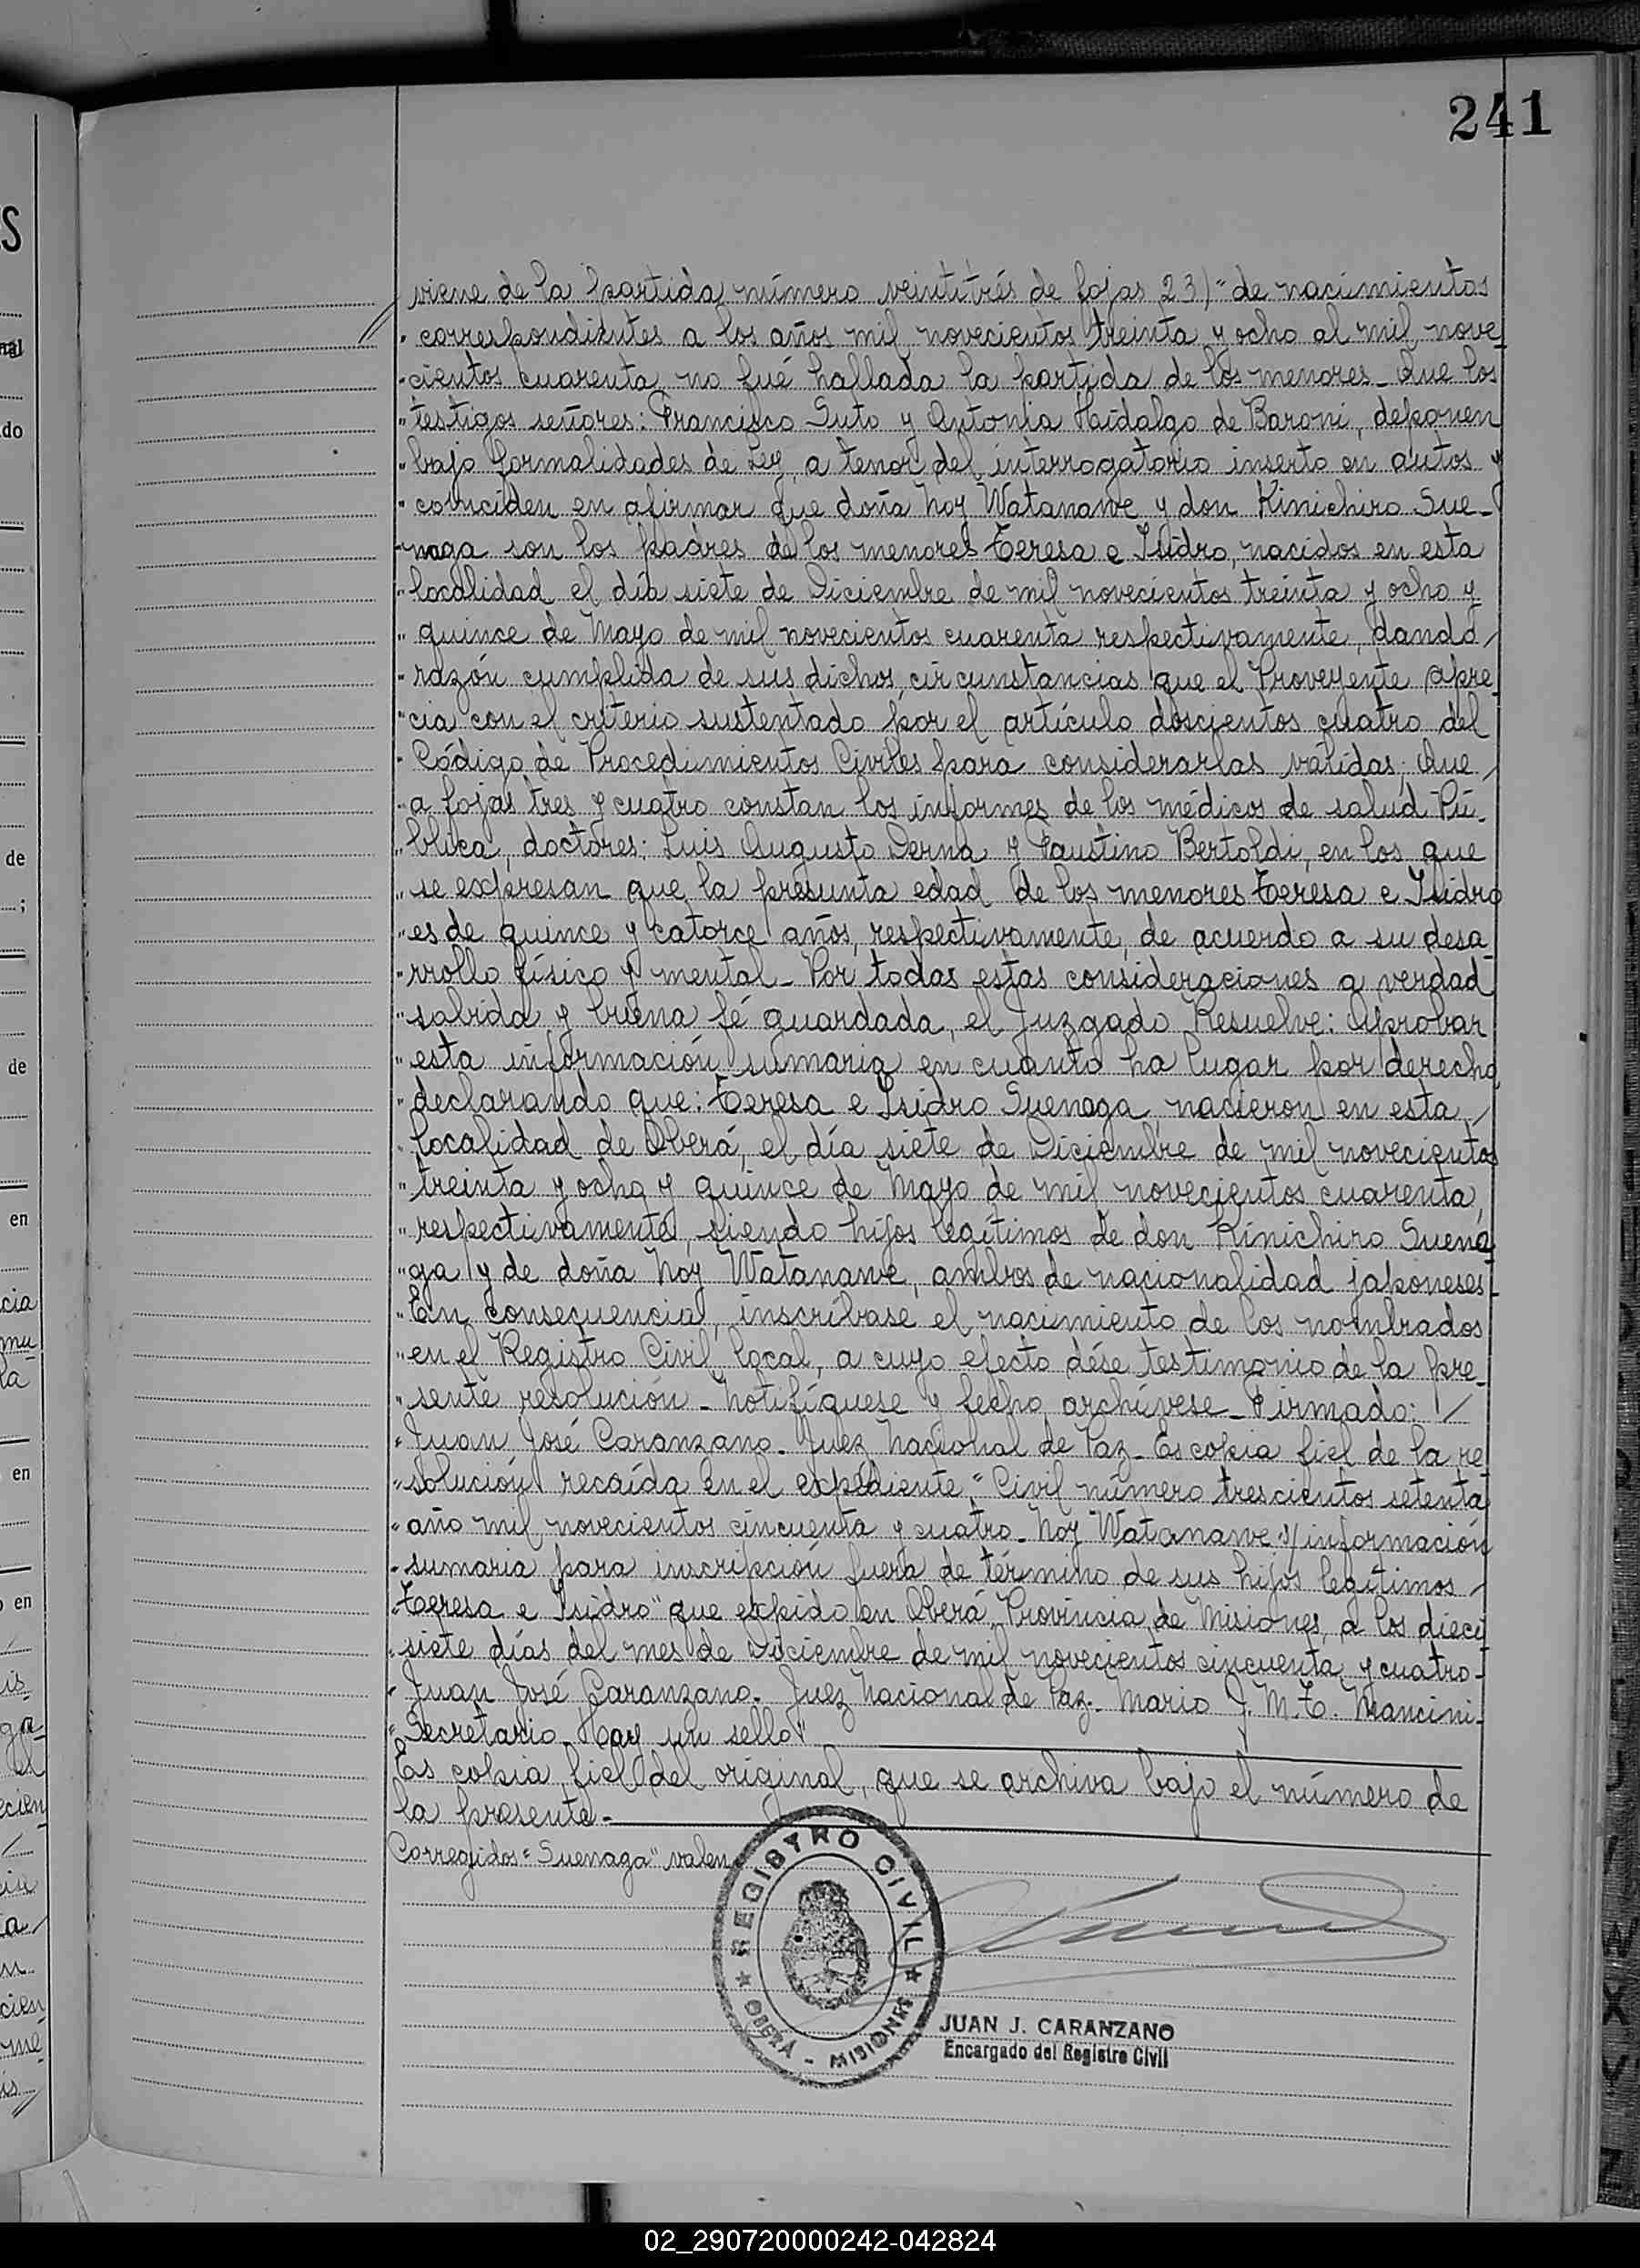 241
viene de la partida número veintitrés de fojas 23)" de nacimientos
" correspondientes a los años mil novecientos treinta y ocho al mil nove_
" cientos cuarenta no fué hallada la partida de los menores_ Que los
" testigos señores: Francisco Suto y Antonia Haidalgo de Baroni, deponen
" bajo formalidades de Ley, a tenor del interrogatorio inserto en autos y
" coinciden en afirmar que doña Noy Watanawe y don Kinichiro Sue_
" naga son los padres de los menores Teresa e Isidro, nacidos en esta
" localidad el día siete de Diciembre de mil novecientos treinta y ocho y
" quince de Mayo de mil novecientos cuarenta respectivamente, dando /
" razón cumplida de sus dichos, circunstancias que el Proveyente apre_
" cia con el criterio sustentado por el artículo doscientos cuatro del
" Código de Procedimientos Civiles para considerarlas válidas; Que /
" a fojas tres y cuatro constan los informes de los médicos de salud Pú_
" blica, doctores: Luis Augusto Derna y Faustino Bertoldi, en los que
" se expresan que la presunta edad de los menores Teresa e Isidro
" es de quince y catorce años, respectivamente, de acuerdo a su desa_
" rrollo físico y mental_ Por todas estas consideraciones a verdad
" sabida y buena fé guardada, el Juzgado Resuelve: Aprobar
" esta información sumaria en cuanto ha lugar por derecho
" declarando que: Teresa e Isidro Suenaga, nacieron en esta /
" localidad de Oberá, el día siete de Diciembre de mil novecientos
" treinta y ocho y quince de Mayo de mil novecientos cuarenta,
" respectivamente, siendo hijos legítimos de don Kinichiro Suena
" ga y de doña Noy Watanawe, ambos de nacionalidad japoneses_
" En consecuencia, inscríbase el nacimiento de los nombrados
" en el Registro Civil local, a cuyo efecto dése testimonio de la pre_
" sente resolución_ Notifíquese y fecho archívese_ Firmado: /
" Juan José Caranzano_ Juez Nacional de Paz_ Es copia fiel de la re
" solución recaída en el expediente "Civil número trescientos setenta
" año mil novecientos cincuenta y cuatro_ Noy Watanawe s/información
" sumaria para inscripción fuera de término de sus hijos legítimos /
" Teresa e Isidro" que expido en Oberá, Provincia de Misiones, a los dieci
" siete días del mes de Diciembre de mil novecientos cincuenta y cuatro_
" Juan José Caranzano_ Juez Nacional de Paz_ Mario J. M. T. Mancini_
" Secretario_ Hay un sello"
Es copia fiel del original, que se archiva bajo el número de
la presente_
Corregidos= "Suenaga" valen
REGISTRO CIVIL
OBERÁ - MISIONES
JUAN J. CARANZANO
Encargado del Registro Civil
02_290720000242-042824